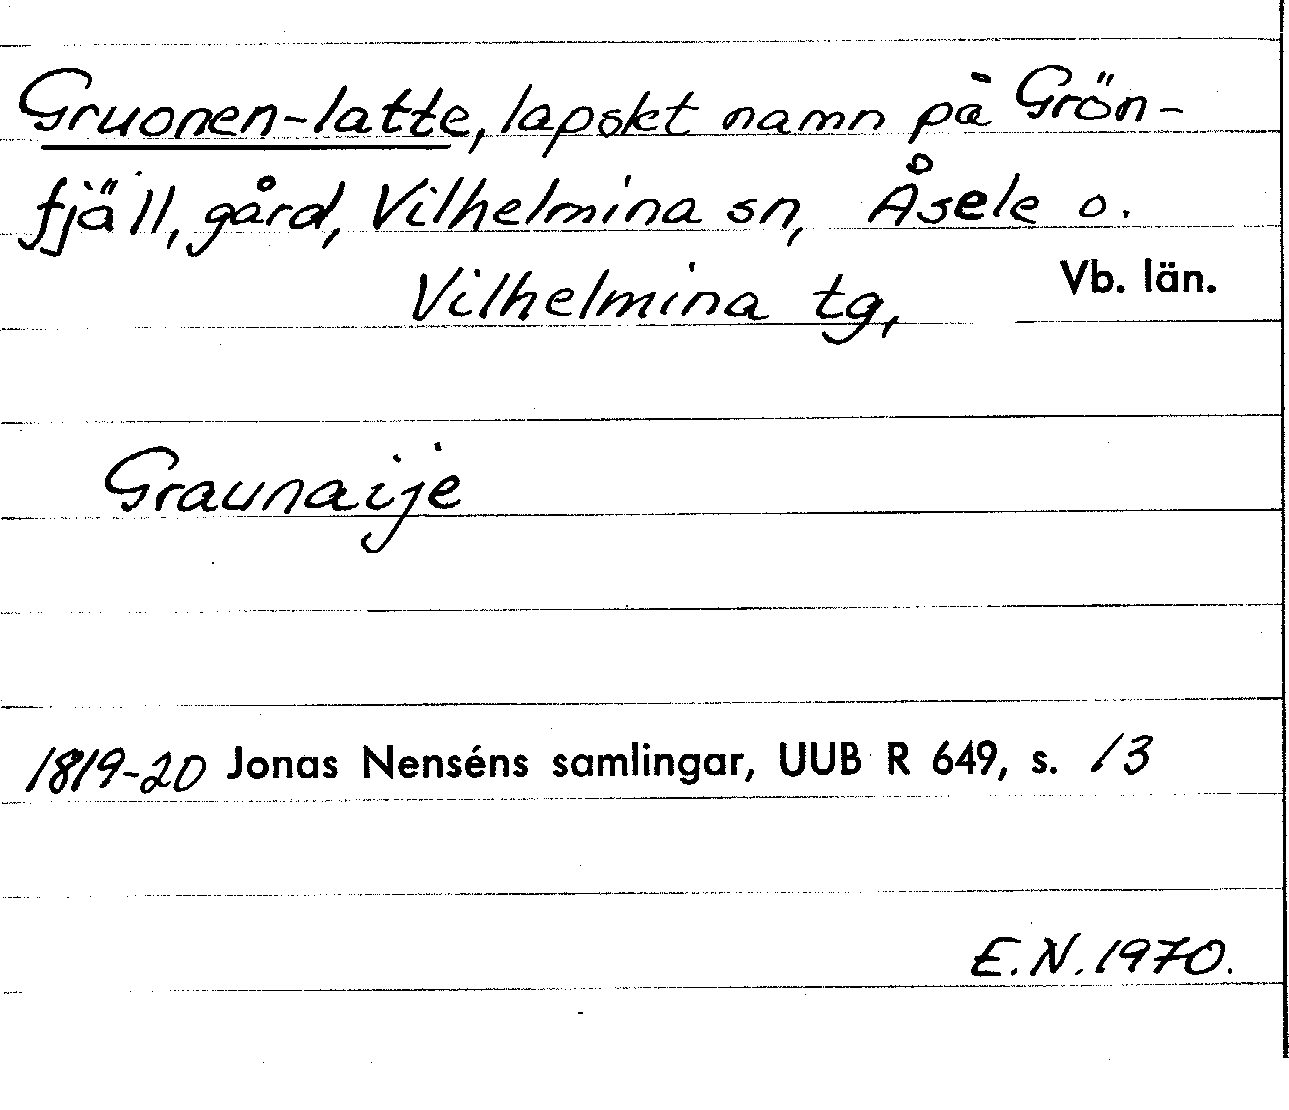 Gruonen-latte, lapskt namn på Grön-
fjäll, gård, Vilhelmina sn, Åsele o.
Vilhelmina tg, Vb. län.
Graunaije
1819-20 Jonas Nenséns samlingar, UUB R 649, s. 13
E.N. 1970.